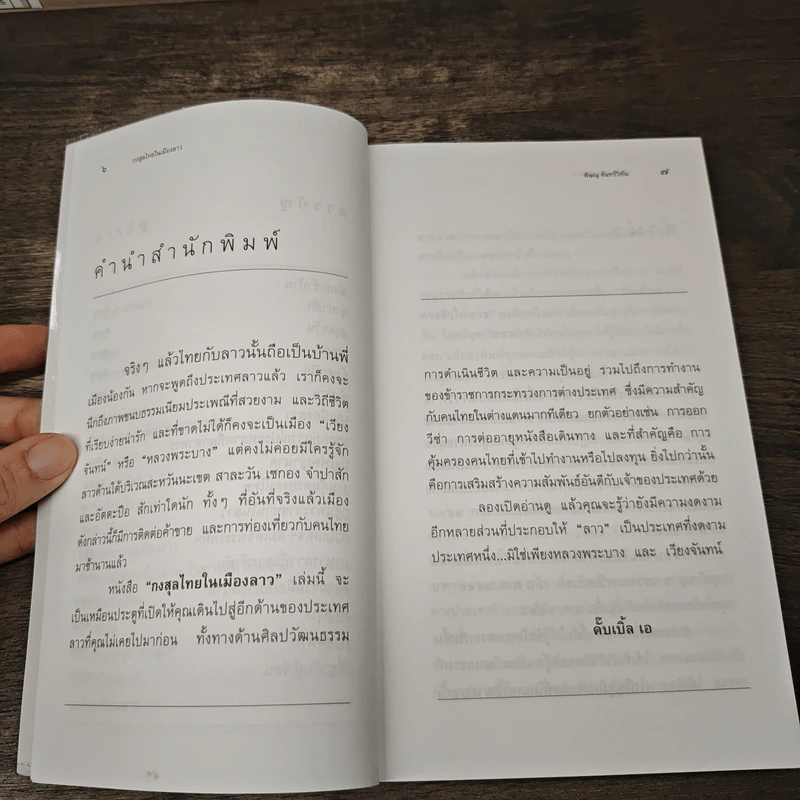 ๖ กงสุลไทยในเมืองลาว
คำนำสำนักพิมพ์
จริงๆ แล้วไทยกับลาวนั้นถือเป็นบ้านพี่
เมืองน้องกัน หากจะพูดถึงประเทศลาวแล้ว เราก็คงจะ
นึกถึงภาพขนบธรรมเนียมประเพณีที่สวยงาม และวิถีชีวิต
ที่เรียบง่ายน่ารัก และที่ขาดไม่ได้ก็คงจะเป็นเมือง “เวียง
จันทน์” หรือ “หลวงพระบาง” แต่คงไม่ค่อยมีใครรู้จัก
ลาวด้านใต้บริเวณสะหวันนะเขต สาละวัน เซกอง จำปาสัก
และอัตตะปือ สักเท่าใดนัก ทั้งๆ ที่อันที่จริงแล้วเมือง
ดังกล่าวนี้ก็มีการติดต่อค้าขาย และการท่องเที่ยวกับคนไทย
มาช้านานแล้ว
หนังสือ “กงสุลไทยในเมืองลาว” เล่มนี้ จะ
เป็นเหมือนประตูที่เปิดให้คุณเดินไปสู่อีกด้านของประเทศ
ลาวที่คุณไม่เคยไปมาก่อน ทั้งทางด้านศิลปวัฒนธรรม
พิษณุ จันทร์วิทัน ๗
การดำเนินชีวิต และความเป็นอยู่ รวมไปถึงการทำงาน
ของข้าราชการกระทรวงการต่างประเทศ ซึ่งมีความสำคัญ
กับคนไทยในต่างแดนมากทีเดียว ยกตัวอย่างเช่น การออก
วีซ่า การต่ออายุหนังสือเดินทาง และที่สำคัญคือ การ
คุ้มครองคนไทยที่เข้าไปทำงานหรือไปลงทุน ยิ่งไปกว่านั้น
คือการเสริมสร้างความสัมพันธ์อันดีกับเจ้าของประเทศด้วย
ลองเปิดอ่านดู แล้วคุณจะรู้ว่ายังมีความงดงาม
อีกหลายส่วนที่ประกอบให้ “ลาว” เป็นประเทศที่งดงาม
ประเทศหนึ่ง...มิใช่เพียงหลวงพระบาง และ เวียงจันทน์
ดั๊บเบิ้ล เอ